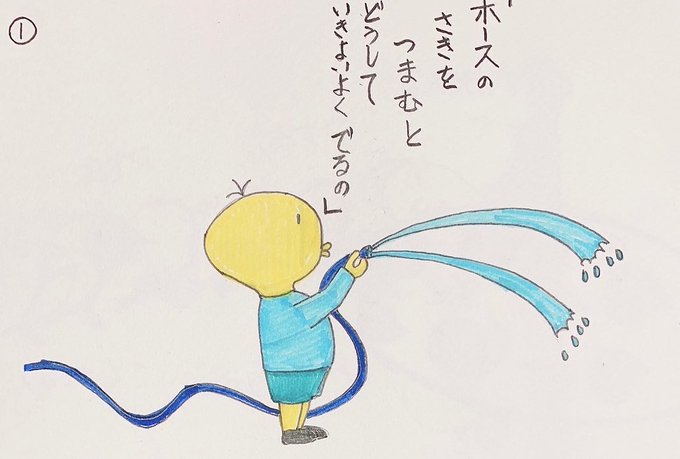 ①
「ホースの
さきを
つまむと
どうして
いきよいよくでるの」